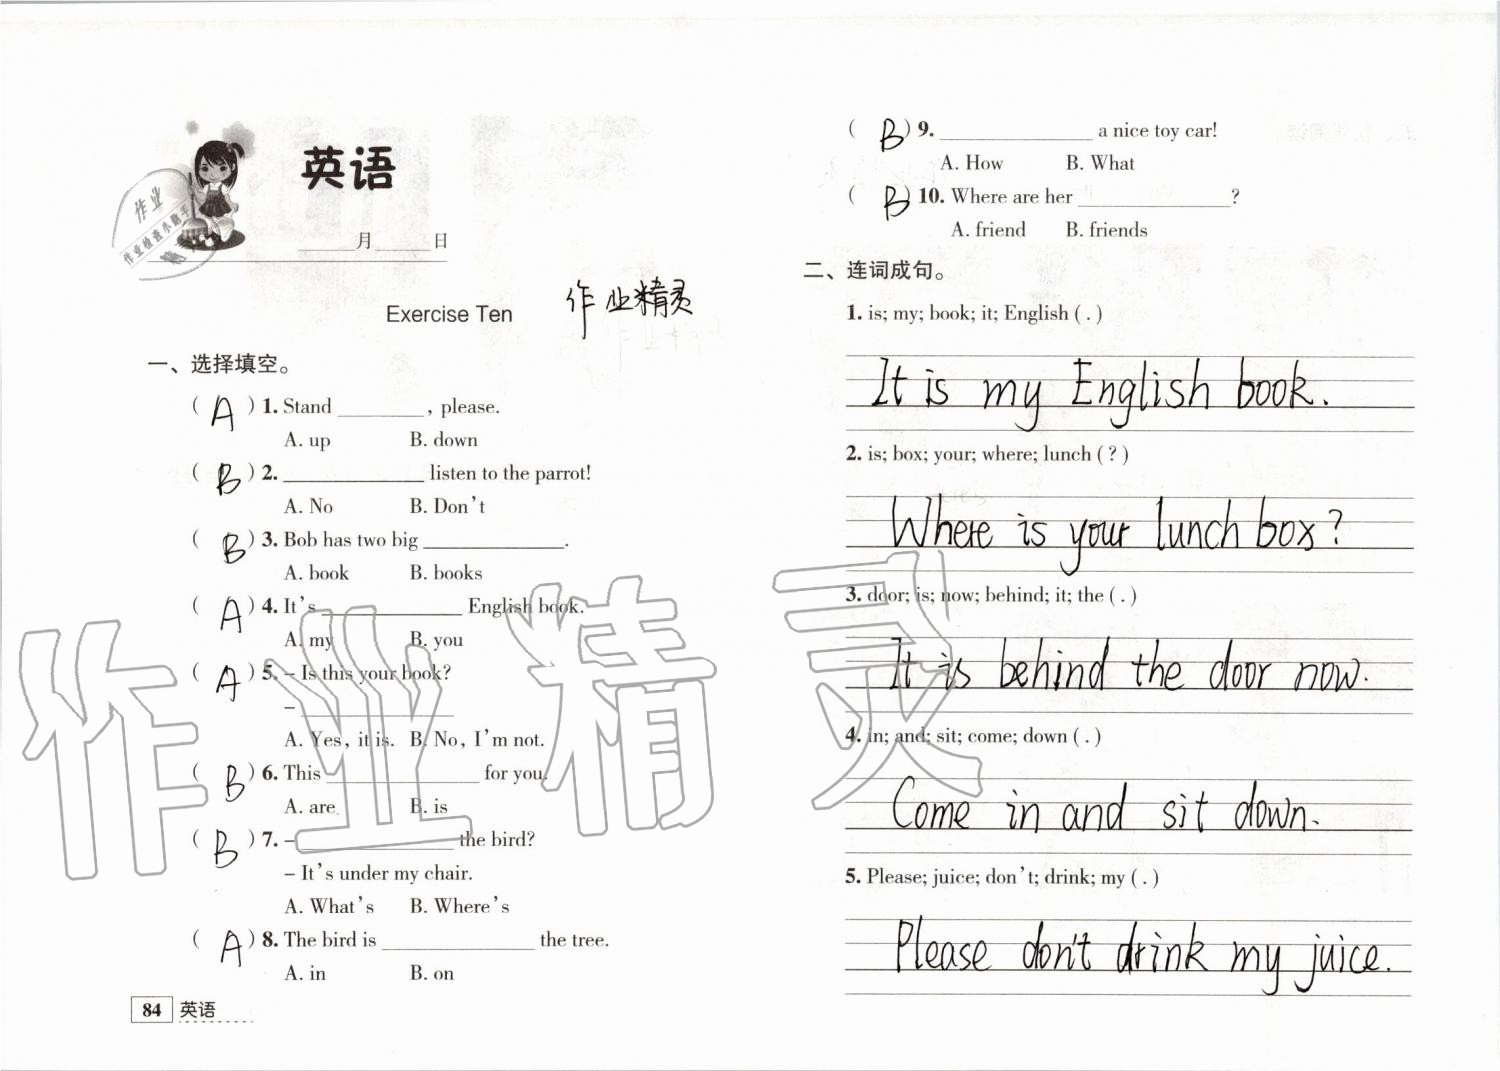 英语
作业
作业检查小助手
月 日
Exercise Ten
作业精灵
一、选择填空。
( A ) 1. Stand ________ , please.
A. up B. down
( B ) 2. ________ listen to the parrot!
A. No B. Don't
( B ) 3. Bob has two big ________.
A. book B. books
( A ) 4. It's ________ English book.
A. my B. you
( A ) 5. – Is this your book?
– ________
A. Yes, it is. B. No, I'm not.
( B ) 6. This ________ for you.
A. are B. is
( B ) 7. – ________ the bird?
– It's under my chair.
A. What's B. Where's
( A ) 8. The bird is ________ the tree.
A. in B. on
84 英语
( B ) 9. ________ a nice toy car!
A. How B. What
( B ) 10. Where are her ________ ?
A. friend B. friends
二、连词成句。
1. is; my; book; it; English ( . )
It is my English book.
2. is; box; your; where; lunch ( ? )
Where is your lunch box?
3. door; is; now; behind; it; the ( . )
It is behind the door now.
4. in; and; sit; come; down ( . )
Come in and sit down.
5. Please; juice; don't; drink; my ( . )
Please don't drink my juice.
作业精灵